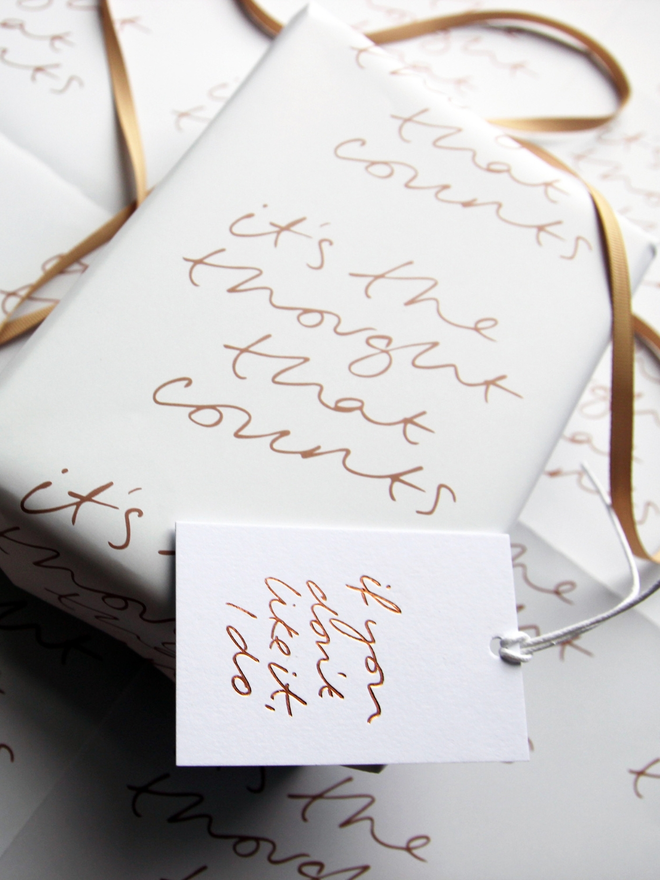 that
counts
it's the
thought
that
counts
it's
if you
don't
like it,
I do.
the
thought